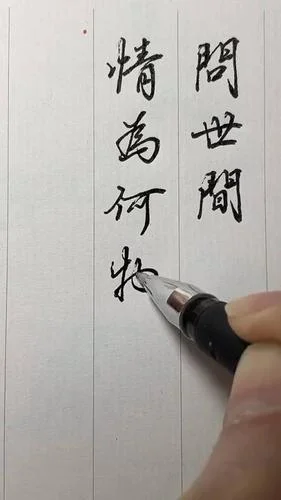 問世間
情為何物